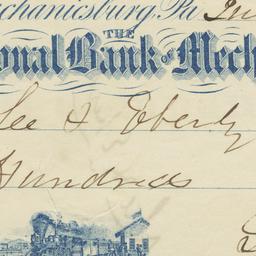 echanicsburg, Pa
THE
ional Bank of Mech
Lee & Eberly
Hundred